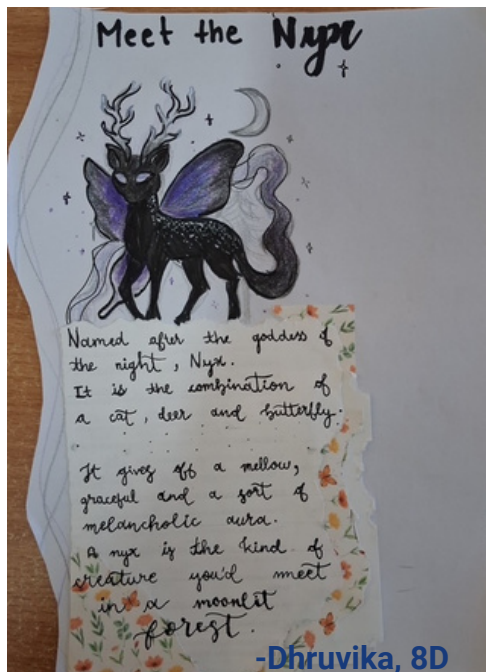 Meet the Nyx
Named after the goddess of
the night, Nyx.
It is the combination of
a cat, deer and butterfly.
It gives off a mellow,
graceful and a sort of
melancholic aura.
A nyx is the kind of
creature you'd meet
in a moonlit
forest.
-Dhruvika, 8D